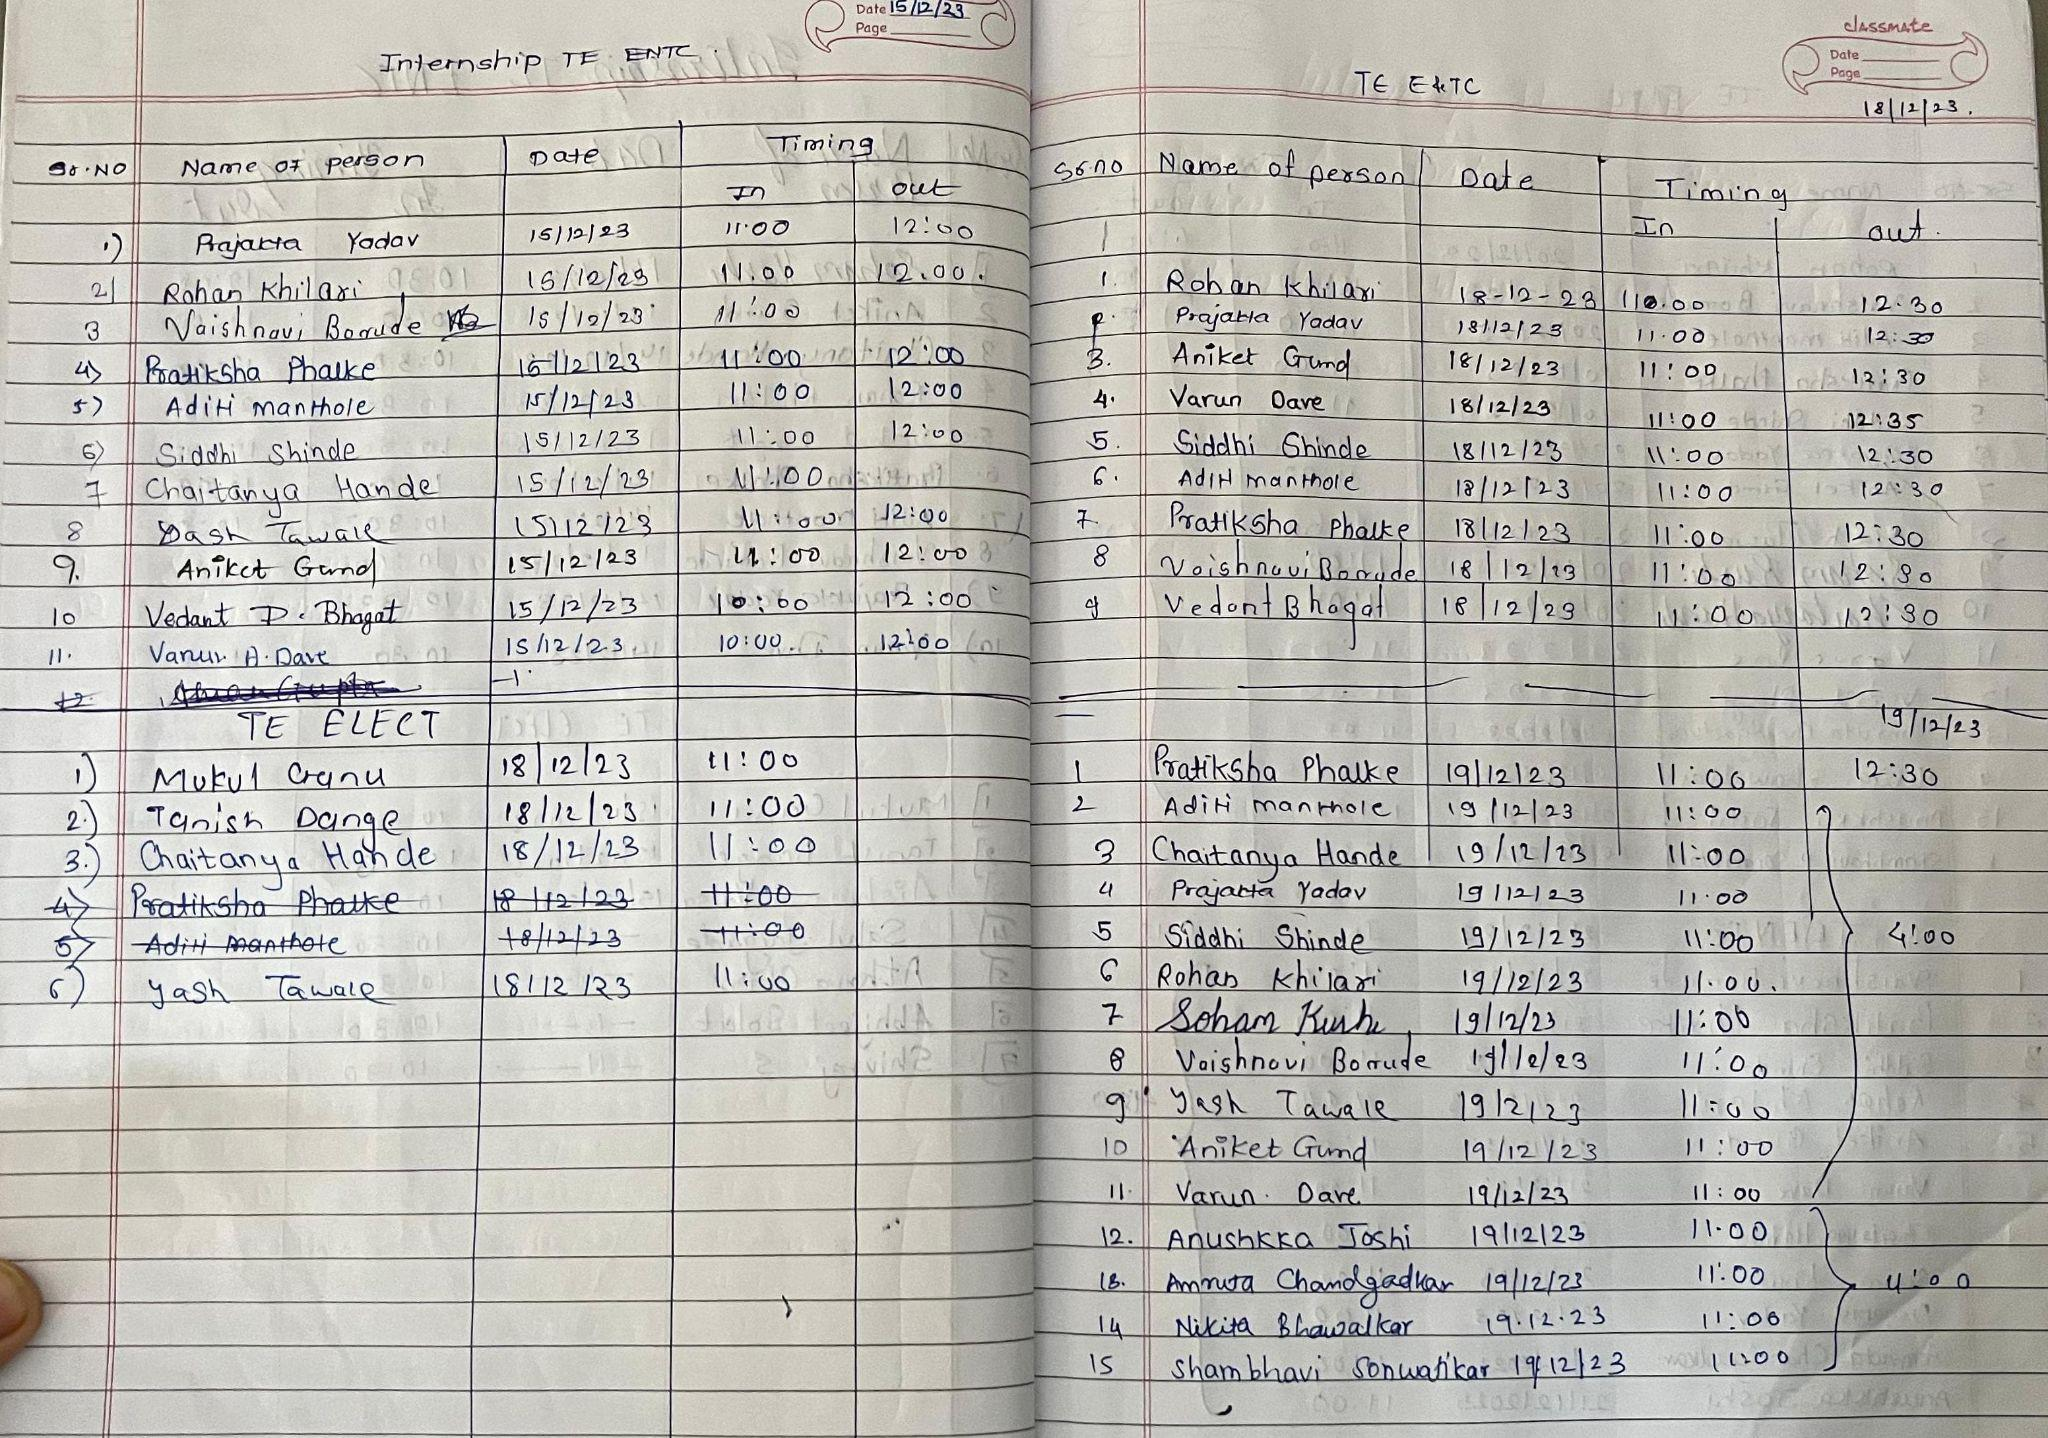 Date 15/12/23
Page
Internship TE ENTC.
Sr.No Name of person Date Timing
In out
1) Prajakta Yadav 15/12/23 11:00 12:00
2) Rohan Khilari 15/12/23 11:00 12.00.
3 Vaishnavi Borrude 15/12/23 11:00
4) Pratiksha Phalke 15/12/23 11:00 12:00
5) Aditi manthole 15/12/23 11:00 12:00
6) Siddhi Shinde 15/12/23 11:00 12:00
7 Chaitanya Hande 15/12/23 11:00
8 Yash Tawale 15/12/23 11:00 12:00
9. Aniket Gund 15/12/23 11:00 12:00
10 Vedant D. Bhagat 15/12/23 10:00 12:00
11. Varun. A. Dave 15/12/23 10:00 12:00
12.
TE ELECT
1) Mukul 18/12/23 11:00
2.) Tanish Dange 18/12/23 11:00
3.) Chaitanya Hande 18/12/23 11:00
4) Pratiksha Phalke 18/12/23 11:00
5) Aditi manthole 18/12/23 11:00
6) Yash Tawale 18/12/23 11:00
classmate
Date
Page
18/12/23.
TE E&TC
Sr.no Name of person Date Timing
In out.
1
1. Rohan Khilari 18-12-23 12.30
Prajakta Yadav 18/12/23 11.00 12:30
3. Aniket Gund 18/12/23 11:00 12:30
4. Varun Dave 18/12/23 11:00 12:35
5. Siddhi Shinde 18/12/23 11:00 12:30
6. Aditi manthole 18/12/23 11:00 12:30
7. Pratiksha Phalke 18/12/23 11:00 12:30
8 Vaishnavi Borrude 18/12/23 11:00 12:30
9 Vedant Bhagat 18/12/23 11:00 12:30
19/12/23
1 Pratiksha Phalke 19/12/23 11:00 12:30
2 Aditi manthole 19/12/23 11:00
3 Chaitanya Hande 19/12/23 11:00
4 Prajakta Yadav 19/12/23 11.00
5 Siddhi Shinde 19/12/23 11:00 4:00
6 Rohan Khilari 19/12/23 11.00.
7 Soham 19/12/23 11:00
8 Vaishnavi Borrude 19/12/23 11:00
9 Yash Tawale 19/2/23 11:00
10 Aniket Gund 19/12/23 11:00
11. Varun. Dave 19/12/23 11:00
12. Anushkka Joshi 19/12/23 11.00
13. Amruta Chandgadkar 19/12/23 11:00 4:00
14 Nikita Bhawalkar 19.12.23 11:00
15 Shambhavi Sonwatikar 19/12/23 11:00